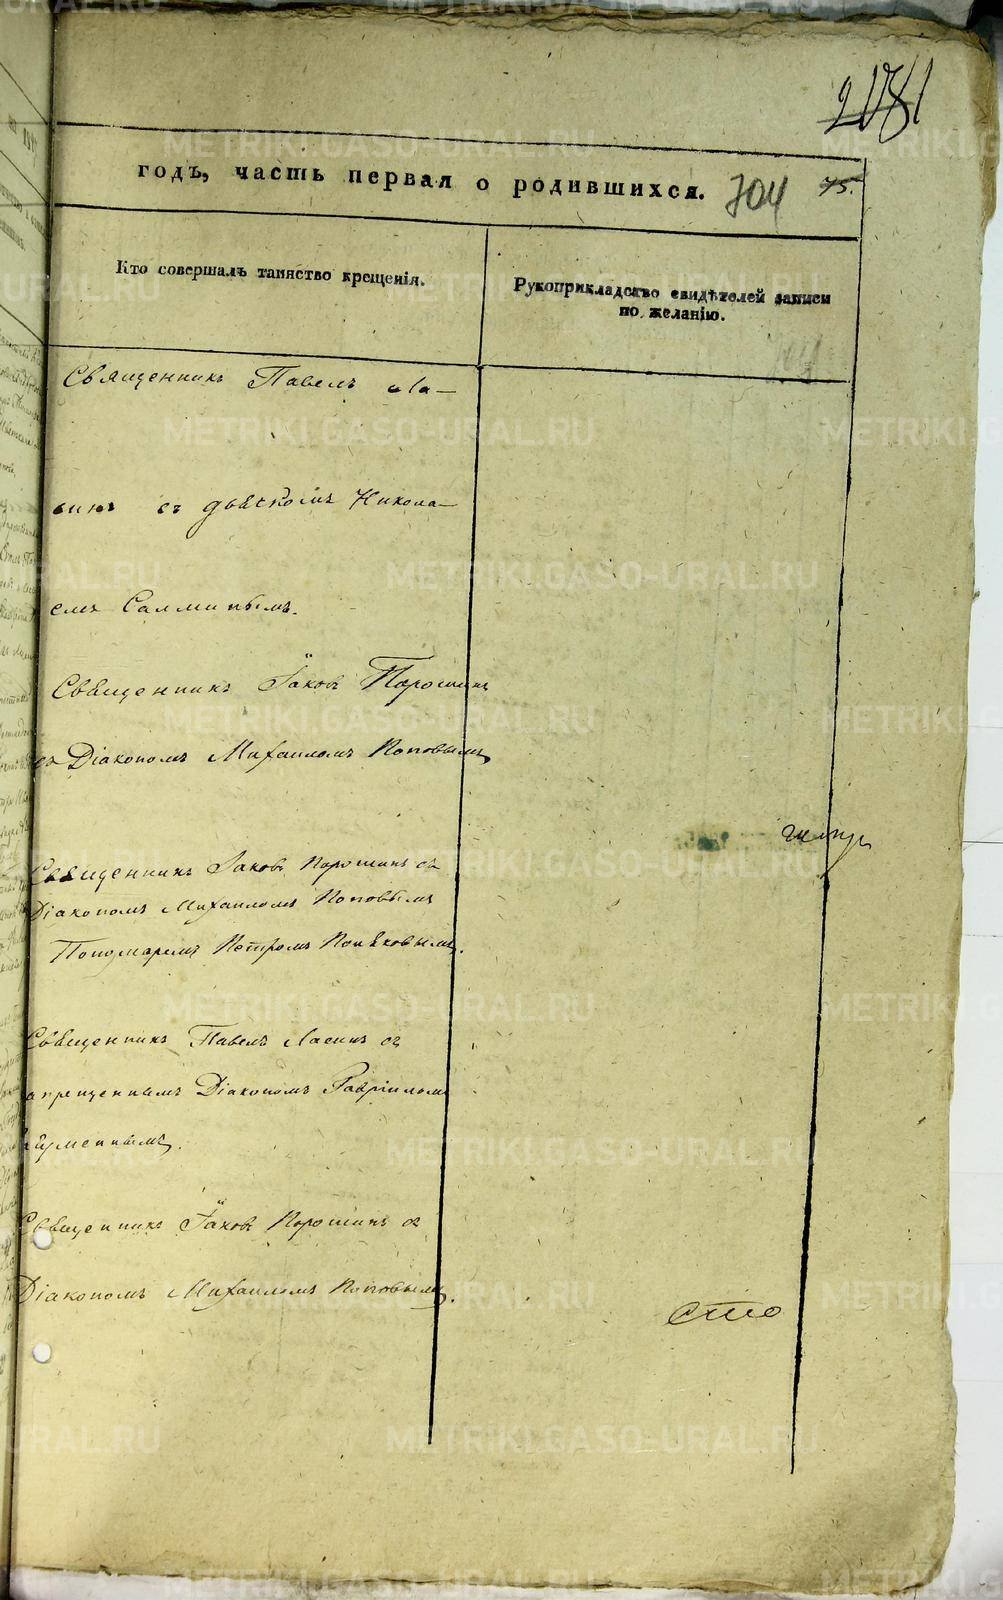 годъ, часть первая о родившихся. 704 75.
Кто совершалъ таинство крещенія.
Рукоприкладство свидѣтелей записи
по желанію.
Священникъ Павелъ Ла-
синъ съ дьячкомъ Никола-
емъ Салминымъ.
Священникъ Іаковъ Порошинъ
съ Діакономъ Михаиломъ Поповымъ
Священникъ Іаковъ Порошинъ съ
Діакономъ Михаиломъ Поповымъ
Пономаремъ Петромъ
Священникъ Павелъ Ласинъ съ
Діакономъ Гавріиломъ
Священникъ Іаковъ Порошинъ съ
Діакономъ Михаиломъ Поповымъ.
сто
METRIKI.GASO-URAL.RU